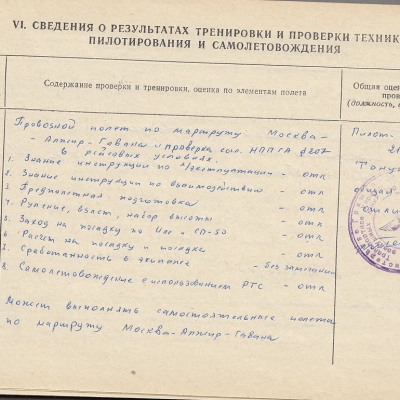 VI. СВЕДЕНИЯ О РЕЗУЛЬТАТАХ ТРЕНИРОВКИ И ПРОВЕРКИ ТЕХНИК
ПИЛОТИРОВАНИЯ И САМОЛЕТОВОЖДЕНИЯ
Содержание проверки и тренировки, оценка по элементам полета
Общая оцен
пров
(должность,
Провозной полет по маршруту Москва-
- Алжир-Гавана и проверка сам. НППГА §207
в рейсовых условиях.
1. Знание инструкции по л/эксплуатации - отл
2. Знание инструкции по взаимодействию - отл
3. Предполетная подготовка - отл
4. Руление, взлет, набор высоты - отл
5. Заход на посадку по СП-50 - отл
6. Расчет на посадку и посадка - отл
7. Сработанность в экипаже - без замечаний
8. Самолетовождение с использованием РТС - отл
Может выполнять самостоятельные полеты
по маршруту Москва-Алжир-Гавана
Пилот-
общая